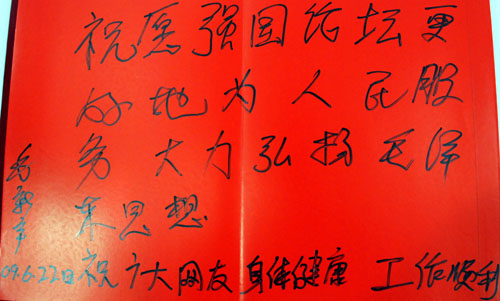 祝愿强国论坛更
好地为人民服
务 大力弘扬毛泽
东思想
祝广大网友 身体健康 工作顺利
毛新宇
09.6.22日